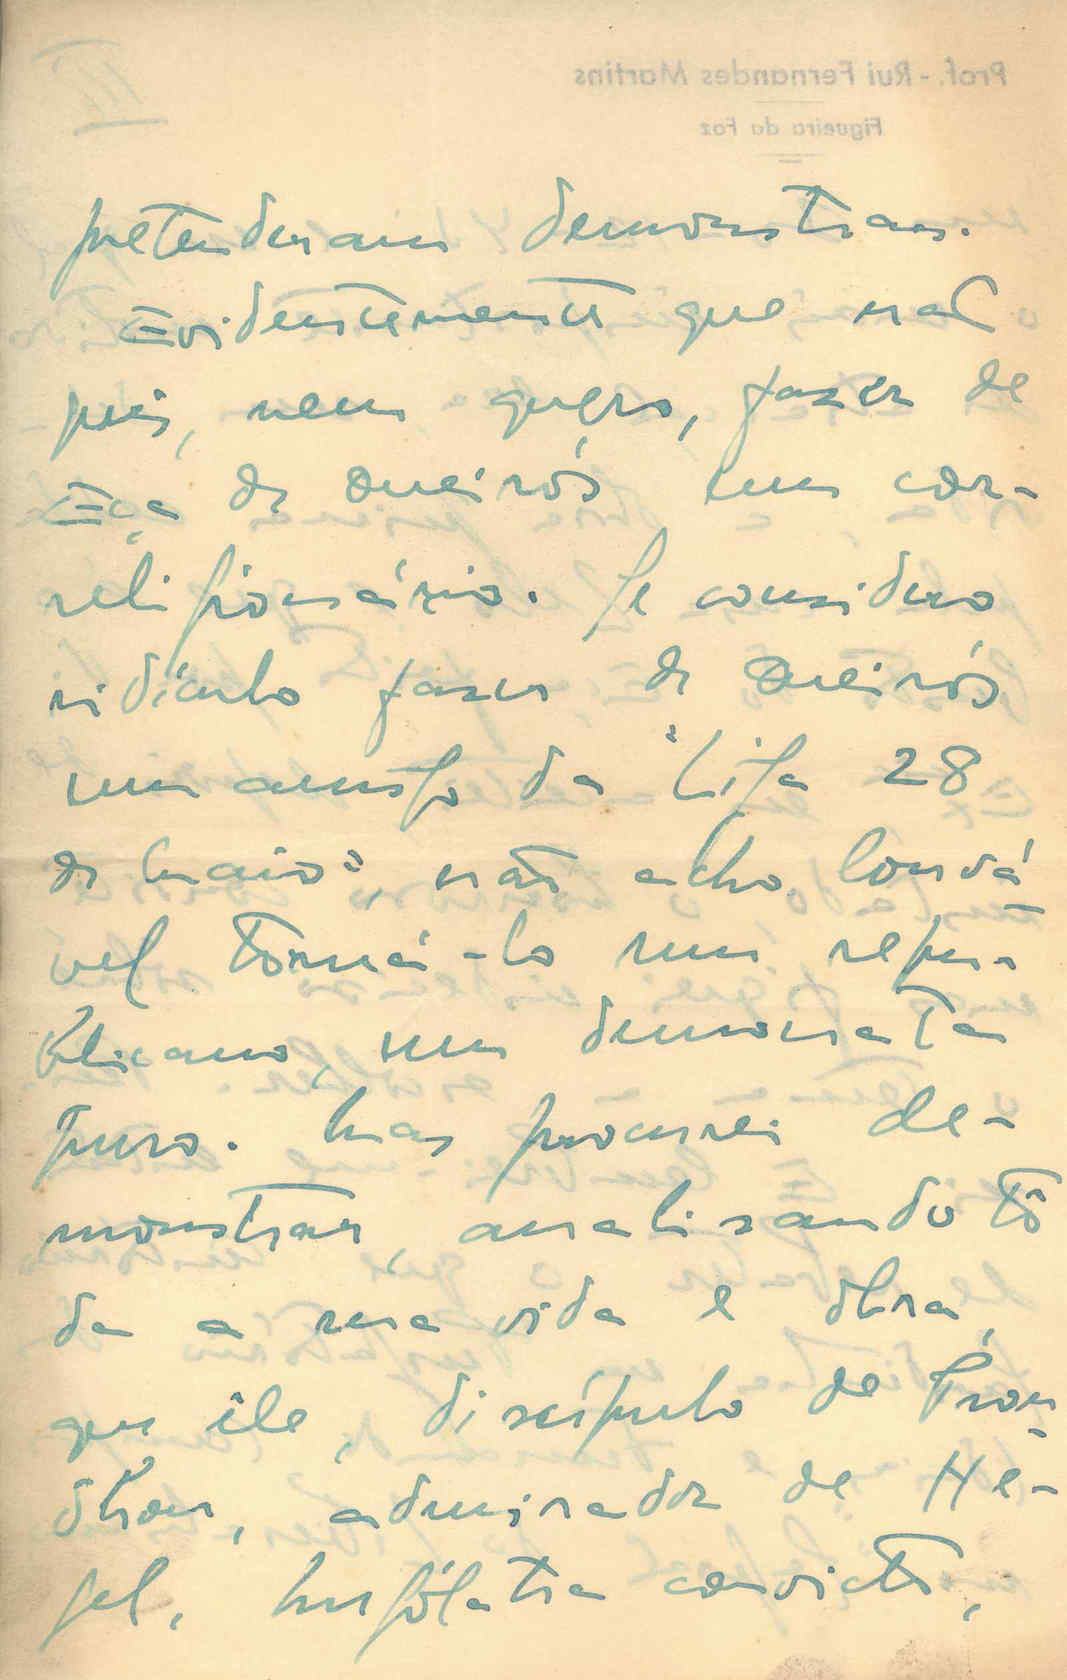 Prof. - Rui Fernandes Martins
Figueira da Foz
III
pretenderam demonstrar.
Evidentemente que não
pois, nem quero, fazer de
Eça de Queirós um cor-
religionário. Se considero
ridículo fazer de Queirós
um amigo da "Liga 28
de Maio", não acho louvá
vel torná-lo num repu-
blicano, um democrata
puro. Mas procurei de-
monstrar, analisando tô
da a sua vida e obra,
que êle, discípulo de Prou
dhon, admirador de He-
gel, hugólatra convicto,